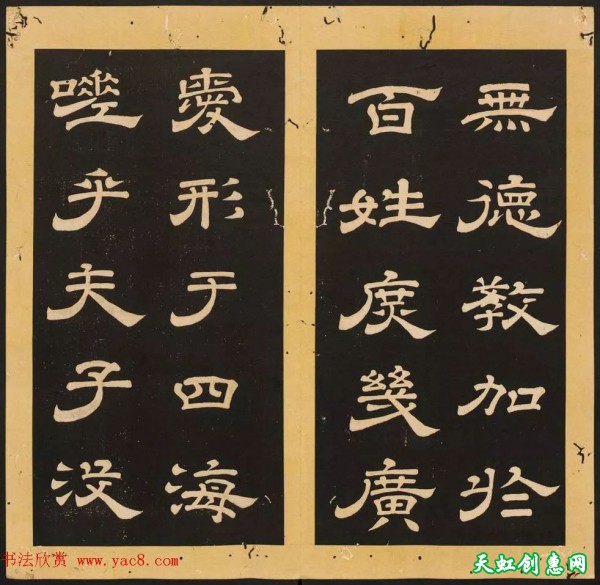 無德教加於
百姓庶幾廣
愛形于四海
嗟乎夫子没
书法欣赏 www.yac8.com
天虹创惠网